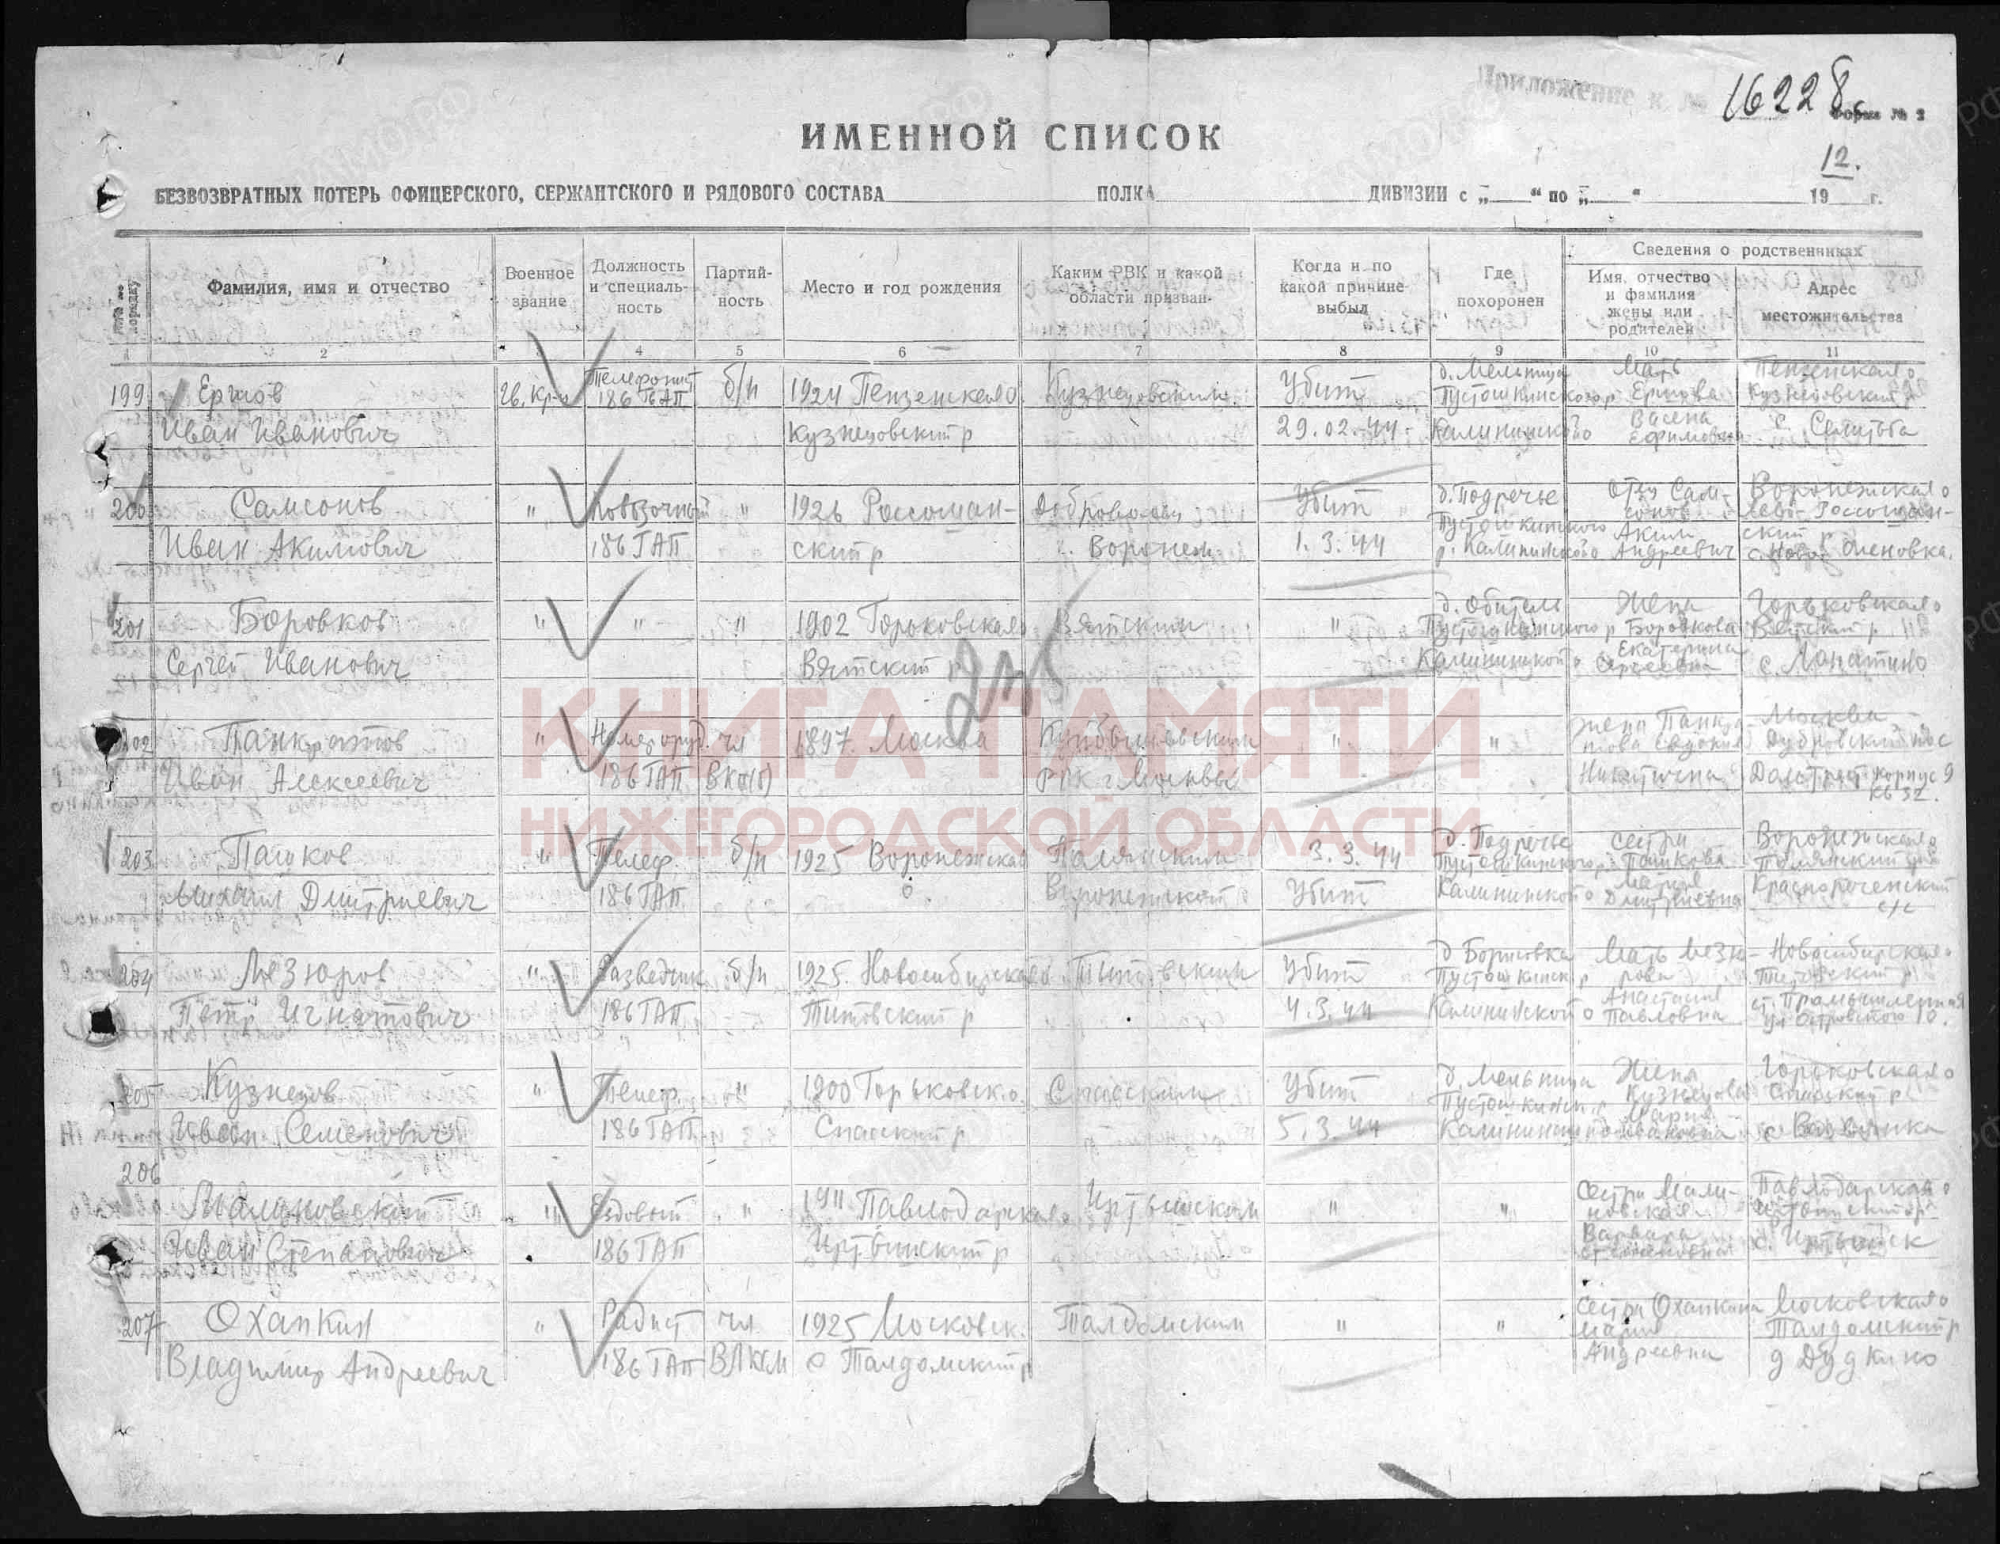 Приложение к №
16228с
Форма № 2
12.
ИМЕННОЙ СПИСОК
БЕЗВОЗВРАТНЫХ ПОТЕРЬ ОФИЦЕРСКОГО, СЕРЖАНТСКОГО И РЯДОВОГО СОСТАВА ПОЛКА ДИВИЗИИ с „ “ по „ “ 19 г.
№№ по порядку
Фамилия, имя и отчество
Военное звание
Должность и специальность
Партийность
Место и год рождения
Каким РВК и какой области призван
Когда и по какой причине выбыл
Где похоронен
Сведения о родственниках
Имя, отчество и фамилия жены или родителей
Адрес местожительства
1 2 3 4 5 6 7 8 9 10 11
199 Ершов Гв. Кр-ц Телефонист 186 ГАП б/п 1924 Пензенская о Кузнецовским Убит д. Мельница Мать Пензенская о
Пустошкинского р Ершова Кузнецовский р
Иван Иванович Кузнецовский р 29.02.44 Калининской о Ефимовна с.
200 Самсонов " Повозочный " 1926 Россошан- Убит д. Подречье отец Сам- Воронежская о
сонов
Иван Акимович 186 ГАП ский р Воронеж 1.3.44 Пустошкинского р. Калининской о Аким Андреевич ский р
201 Боровков " " " 1902 Горьковская о Вятским " д. Обитель Жена Горьковская о
Пустошкинского р Боровкова Вятский р
Сергей Иванович Вятский р Калининской о Екатерина Сергеевна с. Лопатино
202 Панкратов " Номер оруд. чл 1897 Москва Куйбышевским " " жена Панкра- Москва
това Евдокия Дубровский пос
Иван Алексеевич 186 ГАП ВКП(б) РВК г. Москвы Никитична корпус 9
кв 32.
203 Пашков " Телеф. б/п 1925 Воронежская 3.3.44 д. Подречье сестра Воронежская о
Пустошкинского р Пашкова
Михаил Дмитриевич 186 ГАП о Воронежской о Убит Калининской о Мария Дмитриевна
с/с
204 Мезюров " Разведчик б/п 1925 Новосибирская о Титовским Убит д Борисовка Мать Мезю- Новосибирская о
Пустошкинск р рова Титовский р
Петр Игнатович 186 ГАП Титовский р 4.3.44 Калининской о Анастасия Павловна ст. Промышленная
ул Островского 10.
205 Кузнецов " Телеф. " 1900 Горьковск. о. Спасским Убит д. Мельница Жена Горьковская о
Пустошкинск. р Кузнецова Спасский р
Иван Семенович 186 ГАП Спасский р 5.3.44 Мария Ивановна
206
Малиновский " Ездовый " 1911 Павлодарская о Иртышским " " Сестра Мали- Павлодарская о
новская Иртышский р
Иван Степанович 186 ГАП Иртышский р Варвара Степановна с. Иртышск
207 Охапкин " Радист чл 1925 Московск. Талдомским " " Сестра Охапкина Московская о
Мария Талдомский р
Владимир Андреевич 186 ГАП ВЛКСМ о Талдомский р Андреевна д Дудкино
КНИГА ПАМЯТИ
НИЖЕГОРОДСКОЙ ОБЛАСТИ